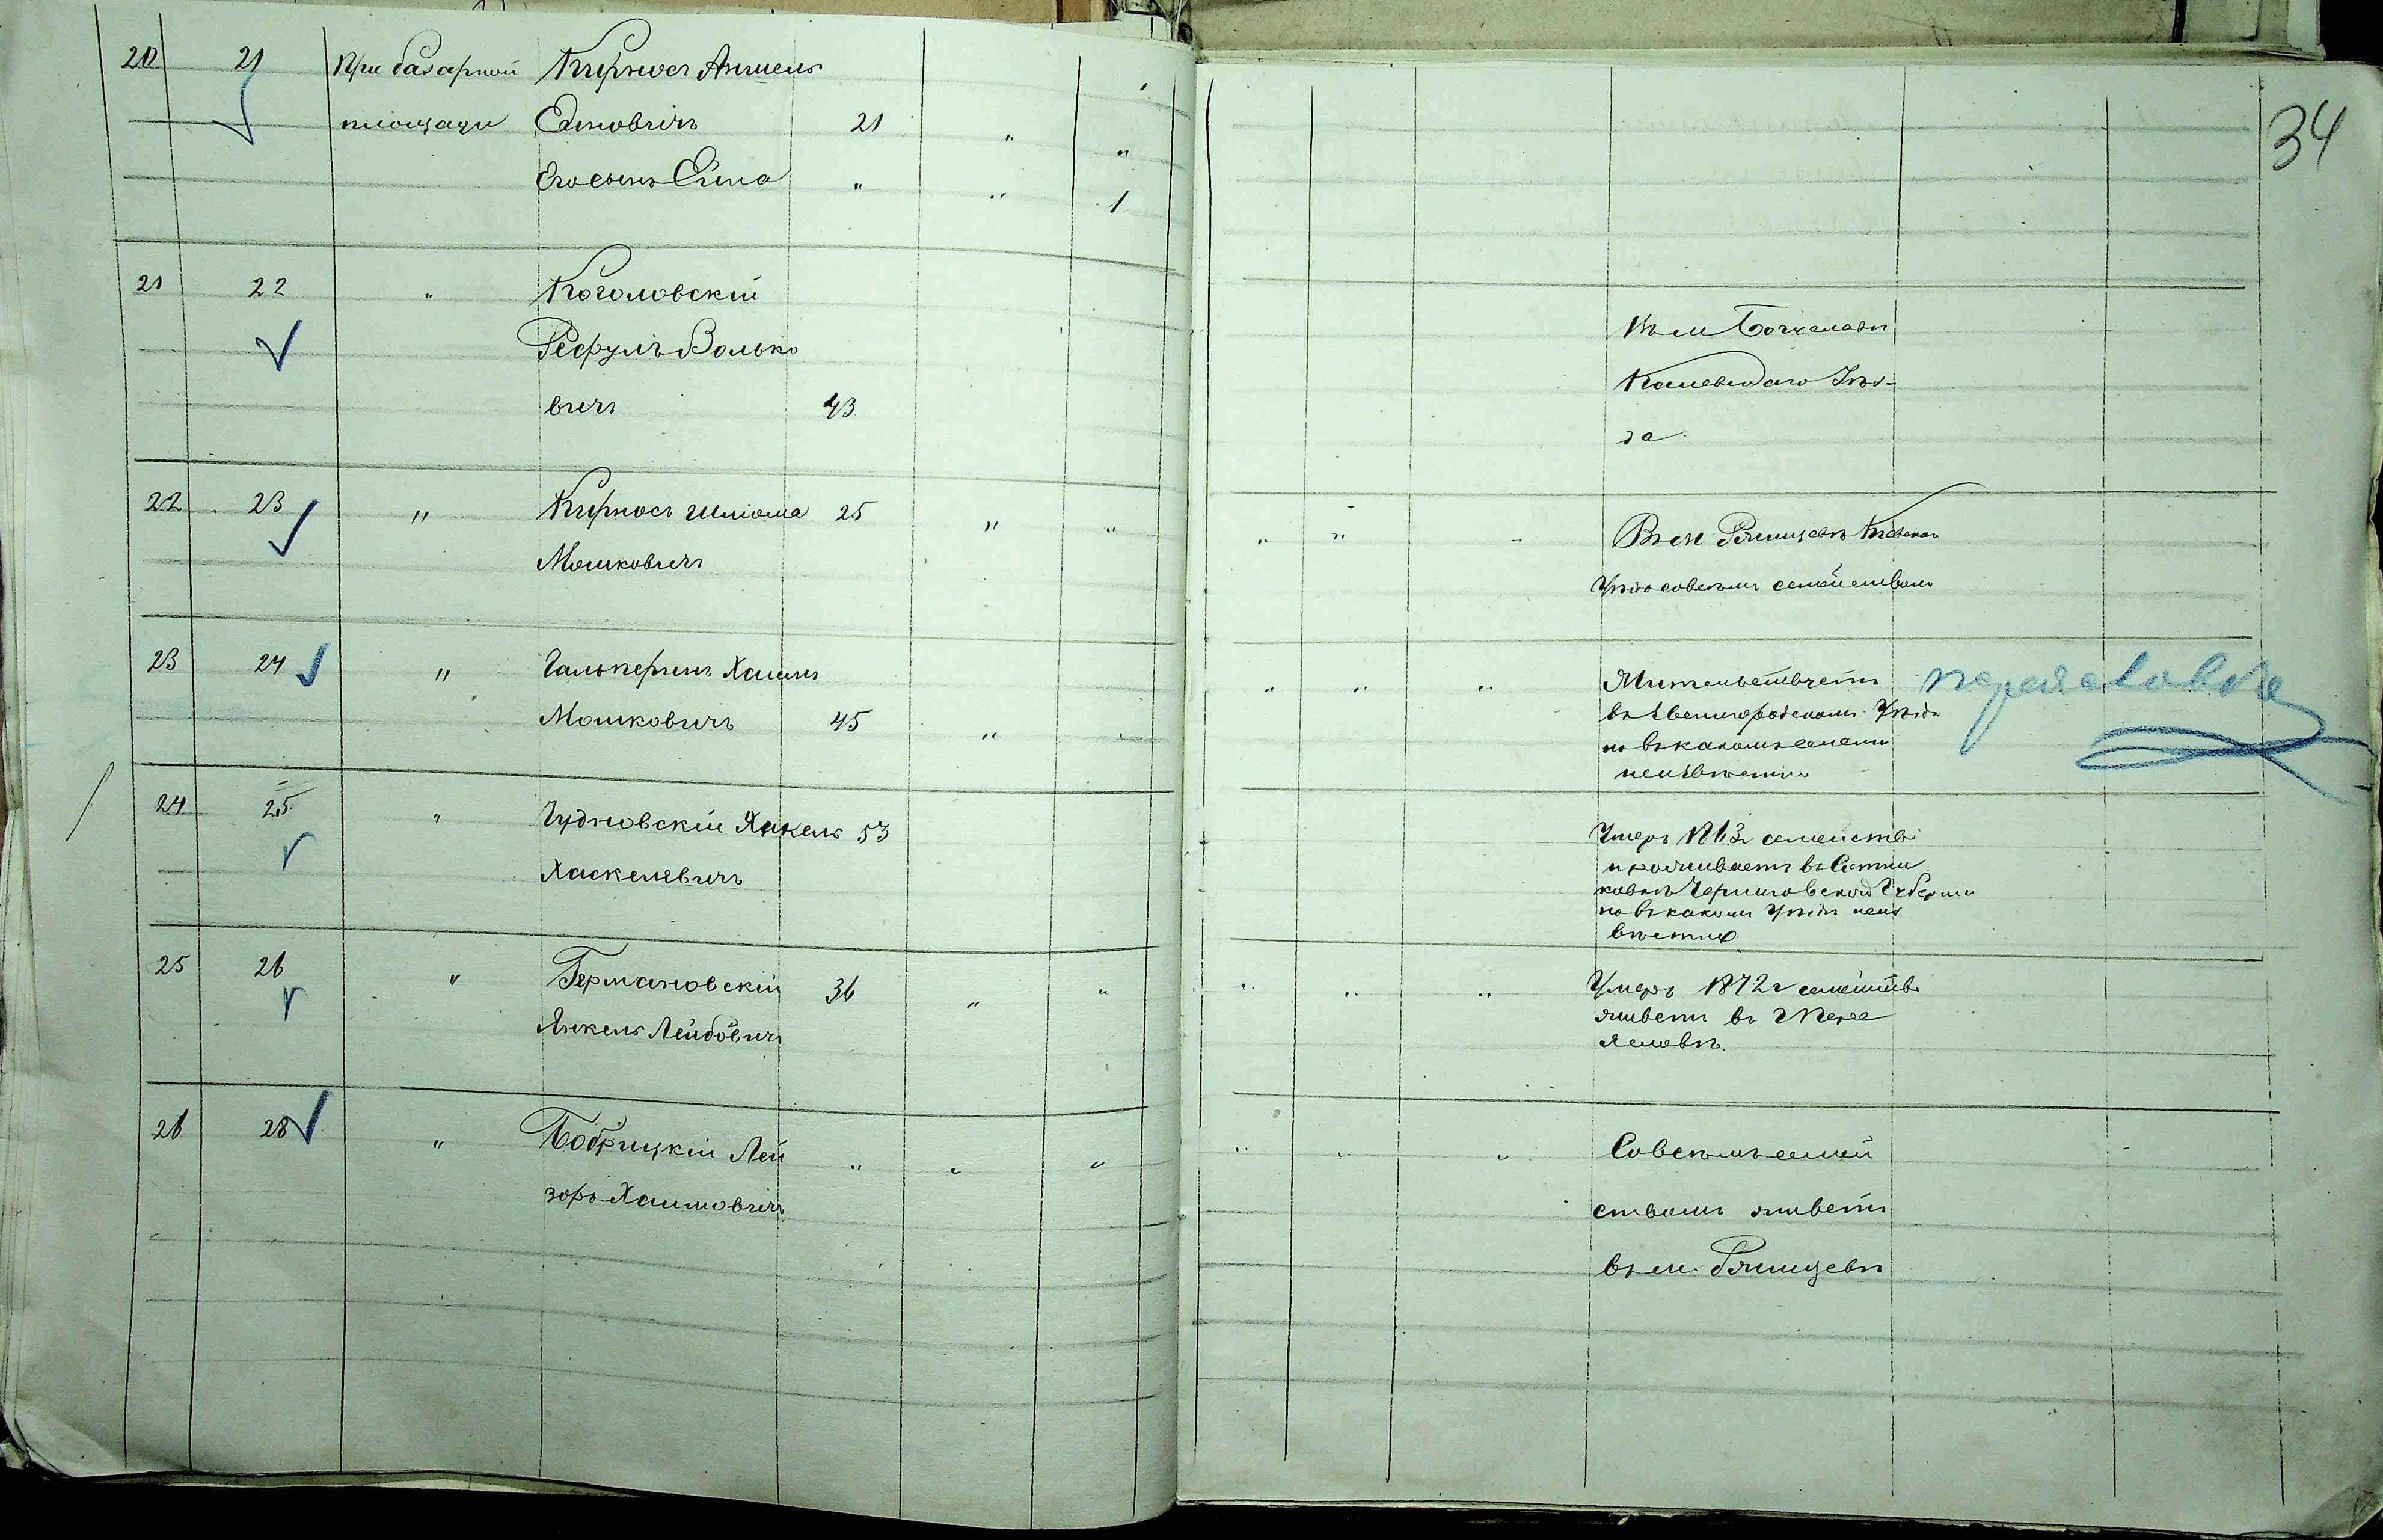 34
20 21 При базарной Кирносъ Аншель
площади Симовичъ 21 " "
Его сынъ Сима " " 1
21 22 " Коголовскій
Рефулъ Волько
вичъ 43
Въ м Богуславѣ
Каневскаго Уѣз-
да
22 23 " Кирносъ Шліома 25 " "
Мошковичъ
" " "
Въ м Ржищевѣ Кіевскаго
Уѣзда совсѣмъ семействомъ
23 24 " Гальперинъ Хаимъ
Мошковичъ 45 "
" " "
Жительствуетъ
въ Звенигородскомъ Уѣздѣ
но въ какомъ селеніи
неизвѣстно
24 25 " Чудновскій Янкель 53
Хаскелевичъ
Умеръ семейство
проживаетъ
Черниговской Губерніи
но въ какомъ Уѣздѣ неиз
вѣстно
25 26 " Германовскій 36 " "
Янкель Лейбовичъ
" " "
Умеръ 1872 г семейство
живетъ въ г Перея
славѣ.
26 28 " Бобрицкій Лей " " "
зоръ Хаимовичъ
" " "
Совсѣмъ семей
ствомъ живетъ
въ м. Ржищевѣ